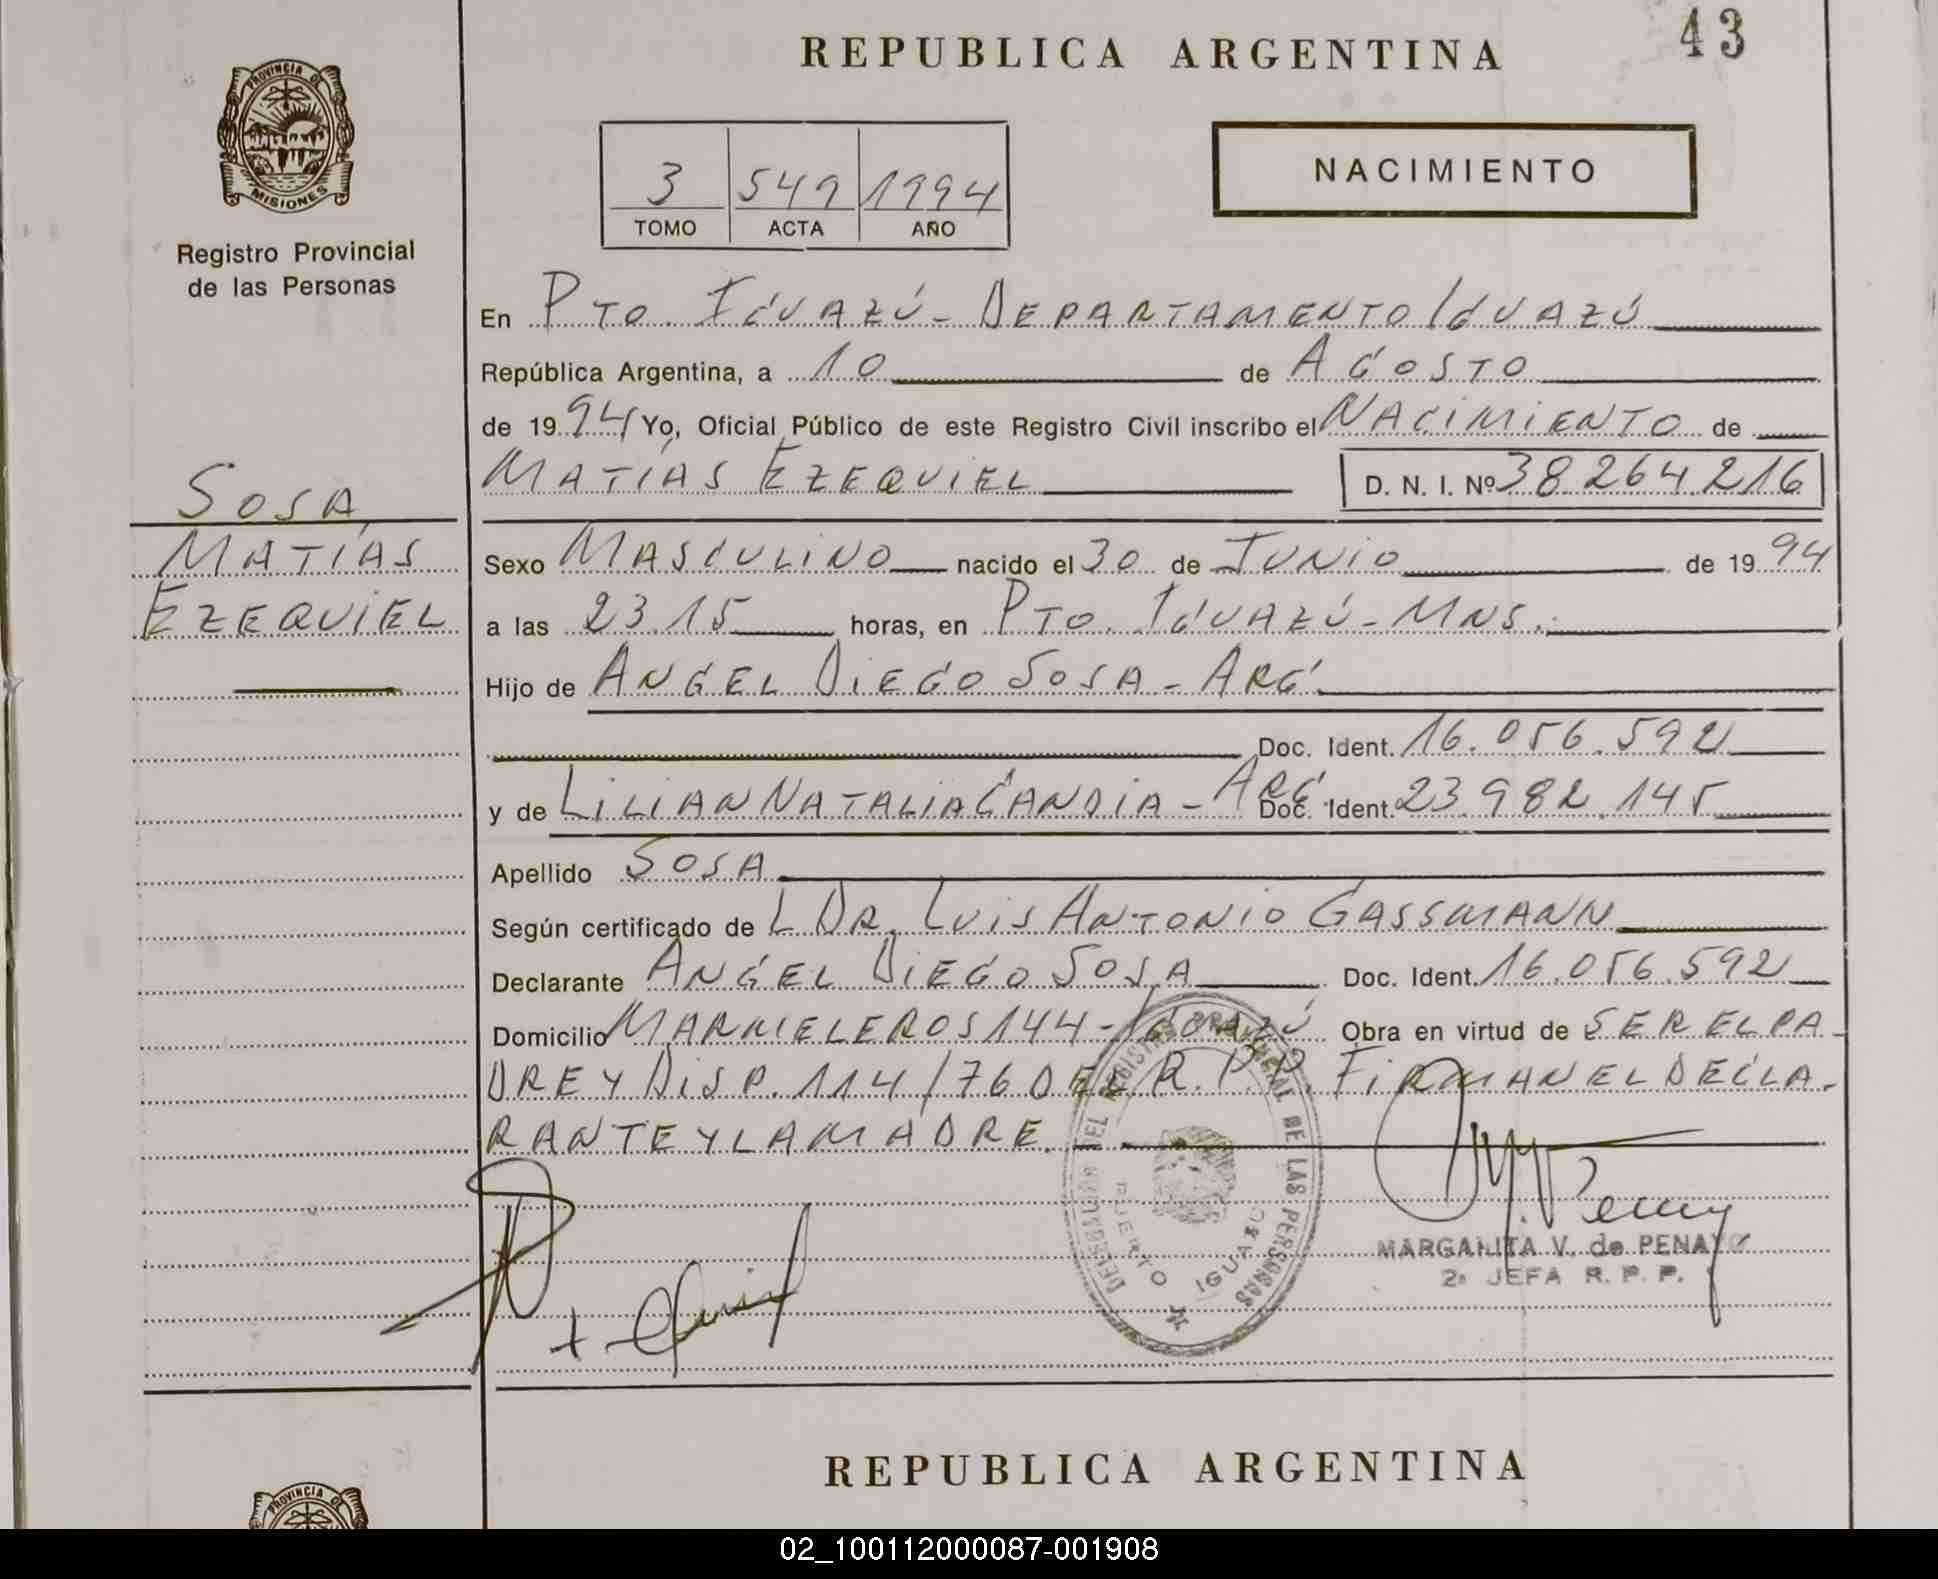 43
REPUBLICA ARGENTINA
PROVINCIA DE
MISIONES
Registro Provincial
de las Personas
NACIMIENTO
3 549 1994
TOMO ACTA AÑO
En PTO. IGUAZÚ - DEPARTAMENTO IGUAZÚ
República Argentina, a 10 de AGOSTO
de 1994 Yo, Oficial Público de este Registro Civil inscribo el NACIMIENTO de
MATÍAS EZEQUIEL D. N. I. Nº 38264216
SOSA
MATÍAS
EZEQUIEL
Sexo MASCULINO nacido el 30 de JUNIO de 1994
a las 23.15 horas, en PTO. IGUAZÚ - MNS.
Hijo de ANGEL DIEGO SOSA - ARG
Doc. Ident. 16.056.592
y de LILIAN NATALIA CANDIA - ARG Doc. Ident. 23.982.145
Apellido SOSA
Según certificado de L DR. LUIS ANTONIO GASSMANN
Declarante ANGEL DIEGO SOSA Doc. Ident. 16.056.592
Domicilio 144 - IGUAZÚ Obra en virtud de SER EL PA-
DRE Y DISP. 114/76 DEL R.P.P. FIRMAN EL DECLA-
RANTE Y LA MADRE.
DEL REGISTRO PROVINCIAL DE LAS PERSONAS
PUERTO IGUAZU
MARGARITA V. de PENAYO
2ª JEFA R. P. P.
REPUBLICA ARGENTINA
PROVINCIA DE
02_100112000087-001908